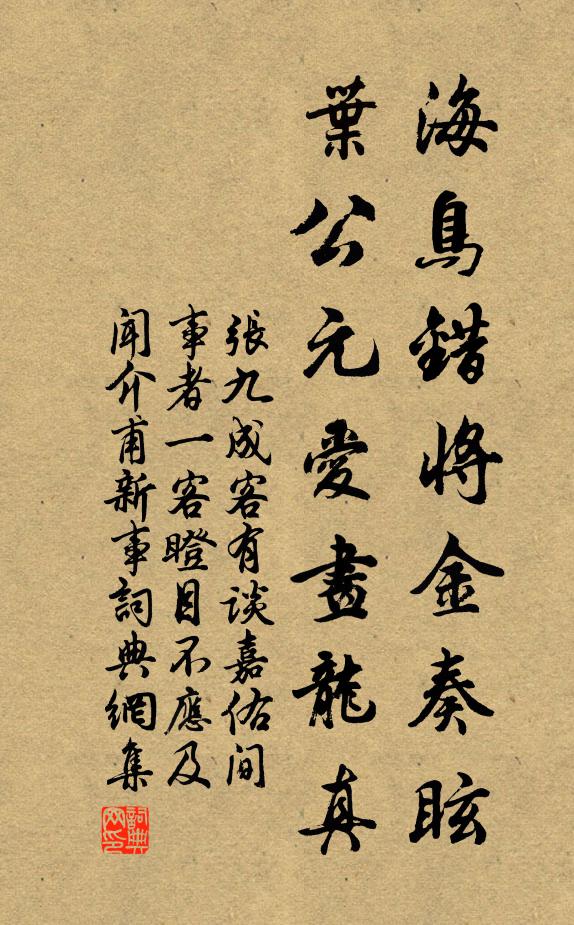 海鳥錯將金奏眩
葉公元愛畫龍真
張九成客有談嘉佑間
事者一客瞪目不應及
聞介甫新事詞典網集
詞典网印